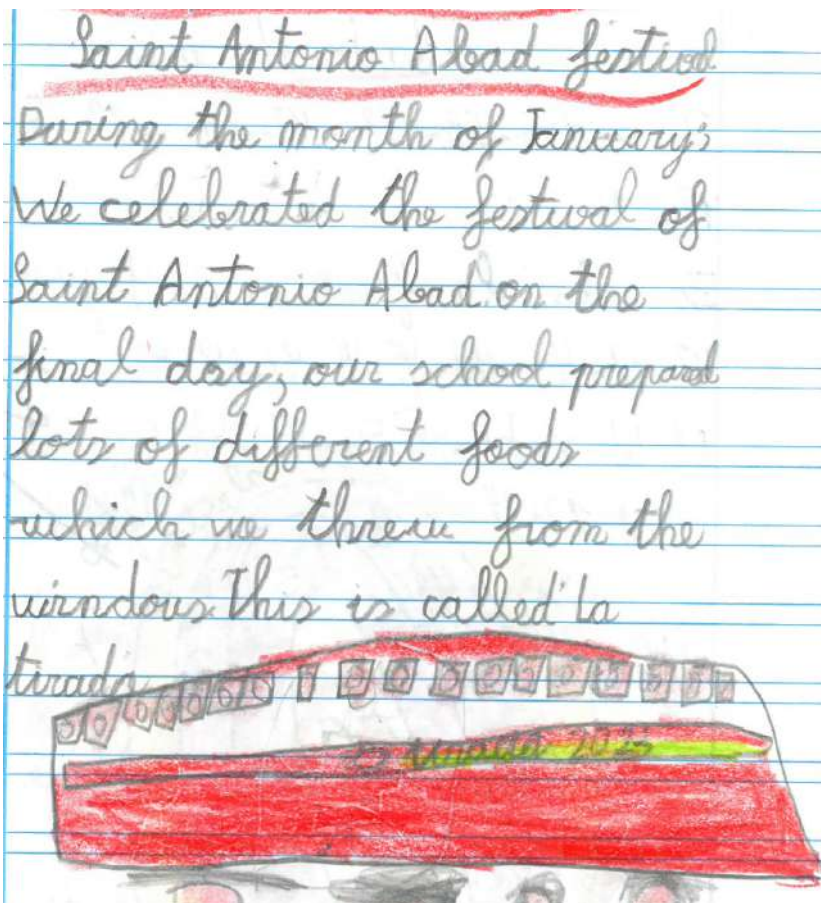 Saint Antonio Abad festival
During the month of January,
We celebrated the festival of
Saint Antonio Abad. on the
final day, our school prepared
lots of different foods
which we threw from the
windows. This is called 'La
tirada
2023